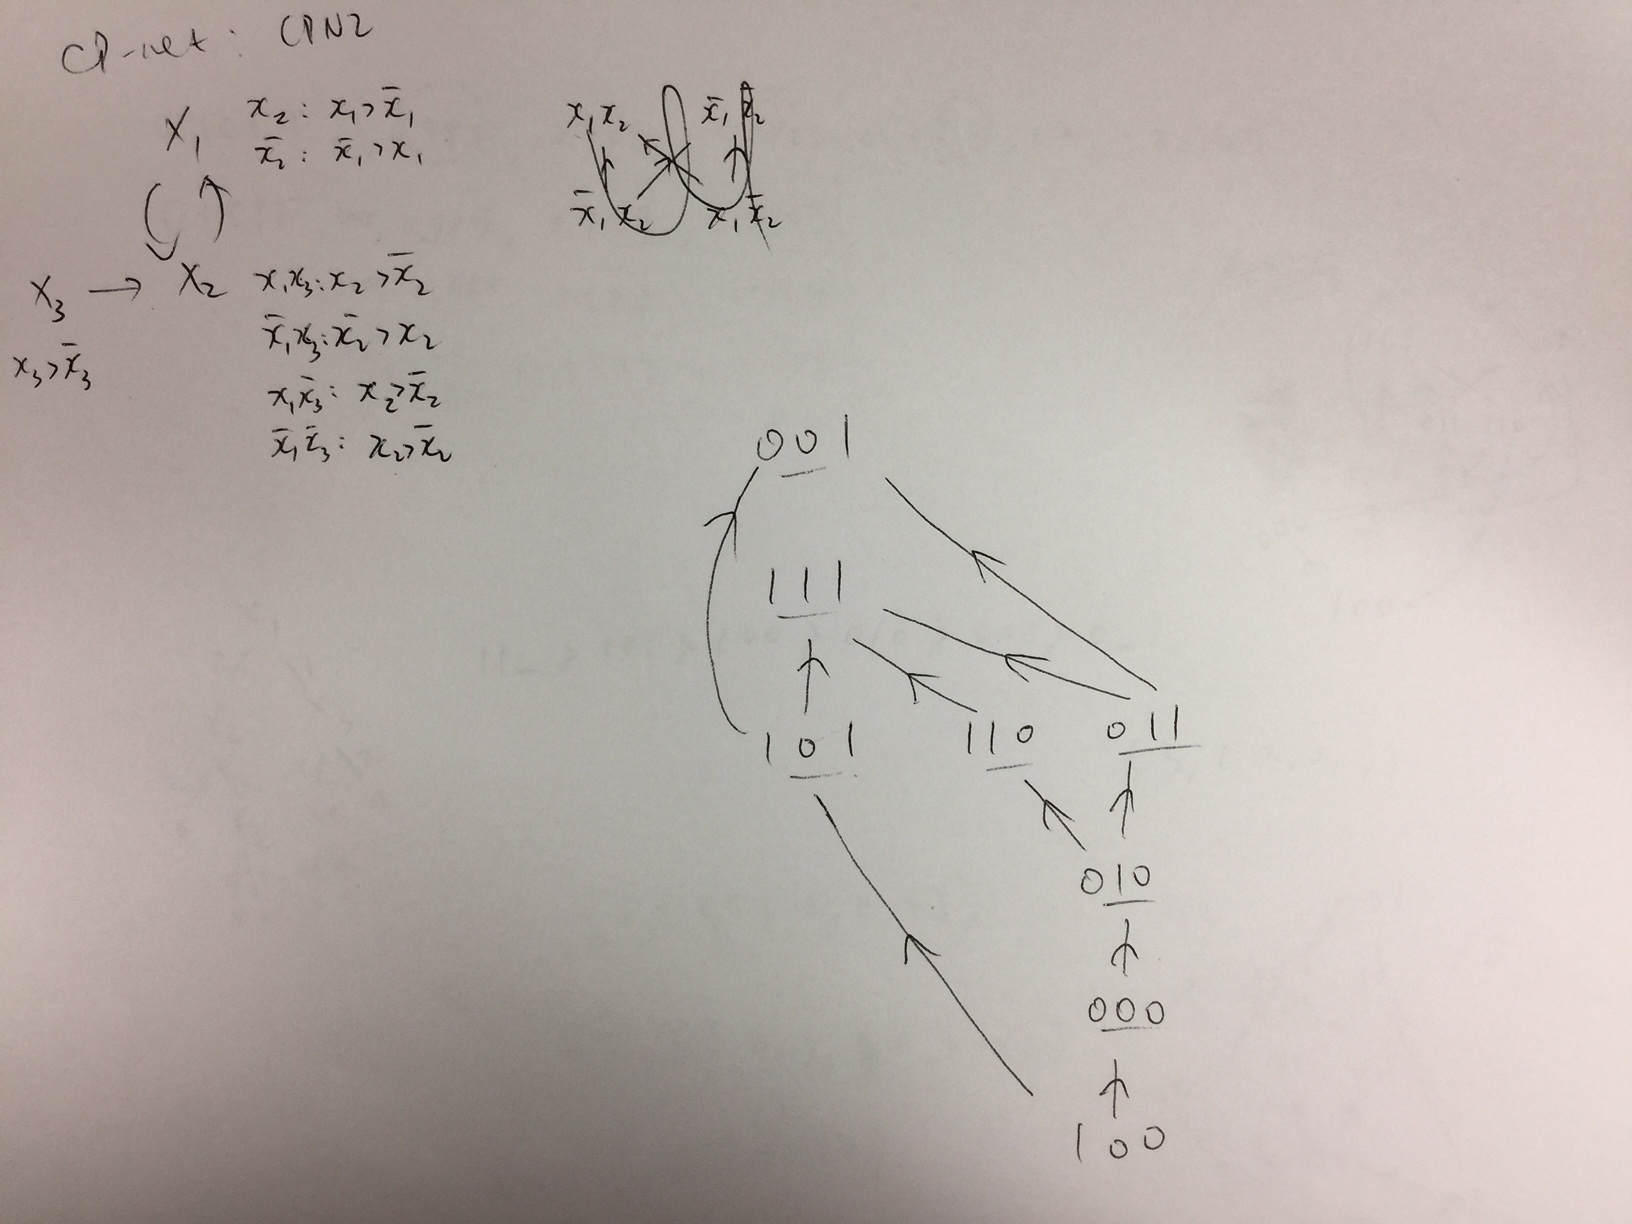 CP-net: CPN2
X₁ x₂ : x₁ > x̄₁
x̄₂ : x̄₁ > x₁
X₃ → X₂ x₁x₃ : x₂ > x̄₂
x̄₁x₃ : x̄₂ > x₂
x₃ > x̄₃
x₁x̄₃ : x₂ > x̄₂
x̄₁x̄₃ : x₂ > x̄₂
x₁x₂ x̄₁x̄₂
x̄₁x₂ x₁x̄₂
001
111
101 110 011
010
000
100